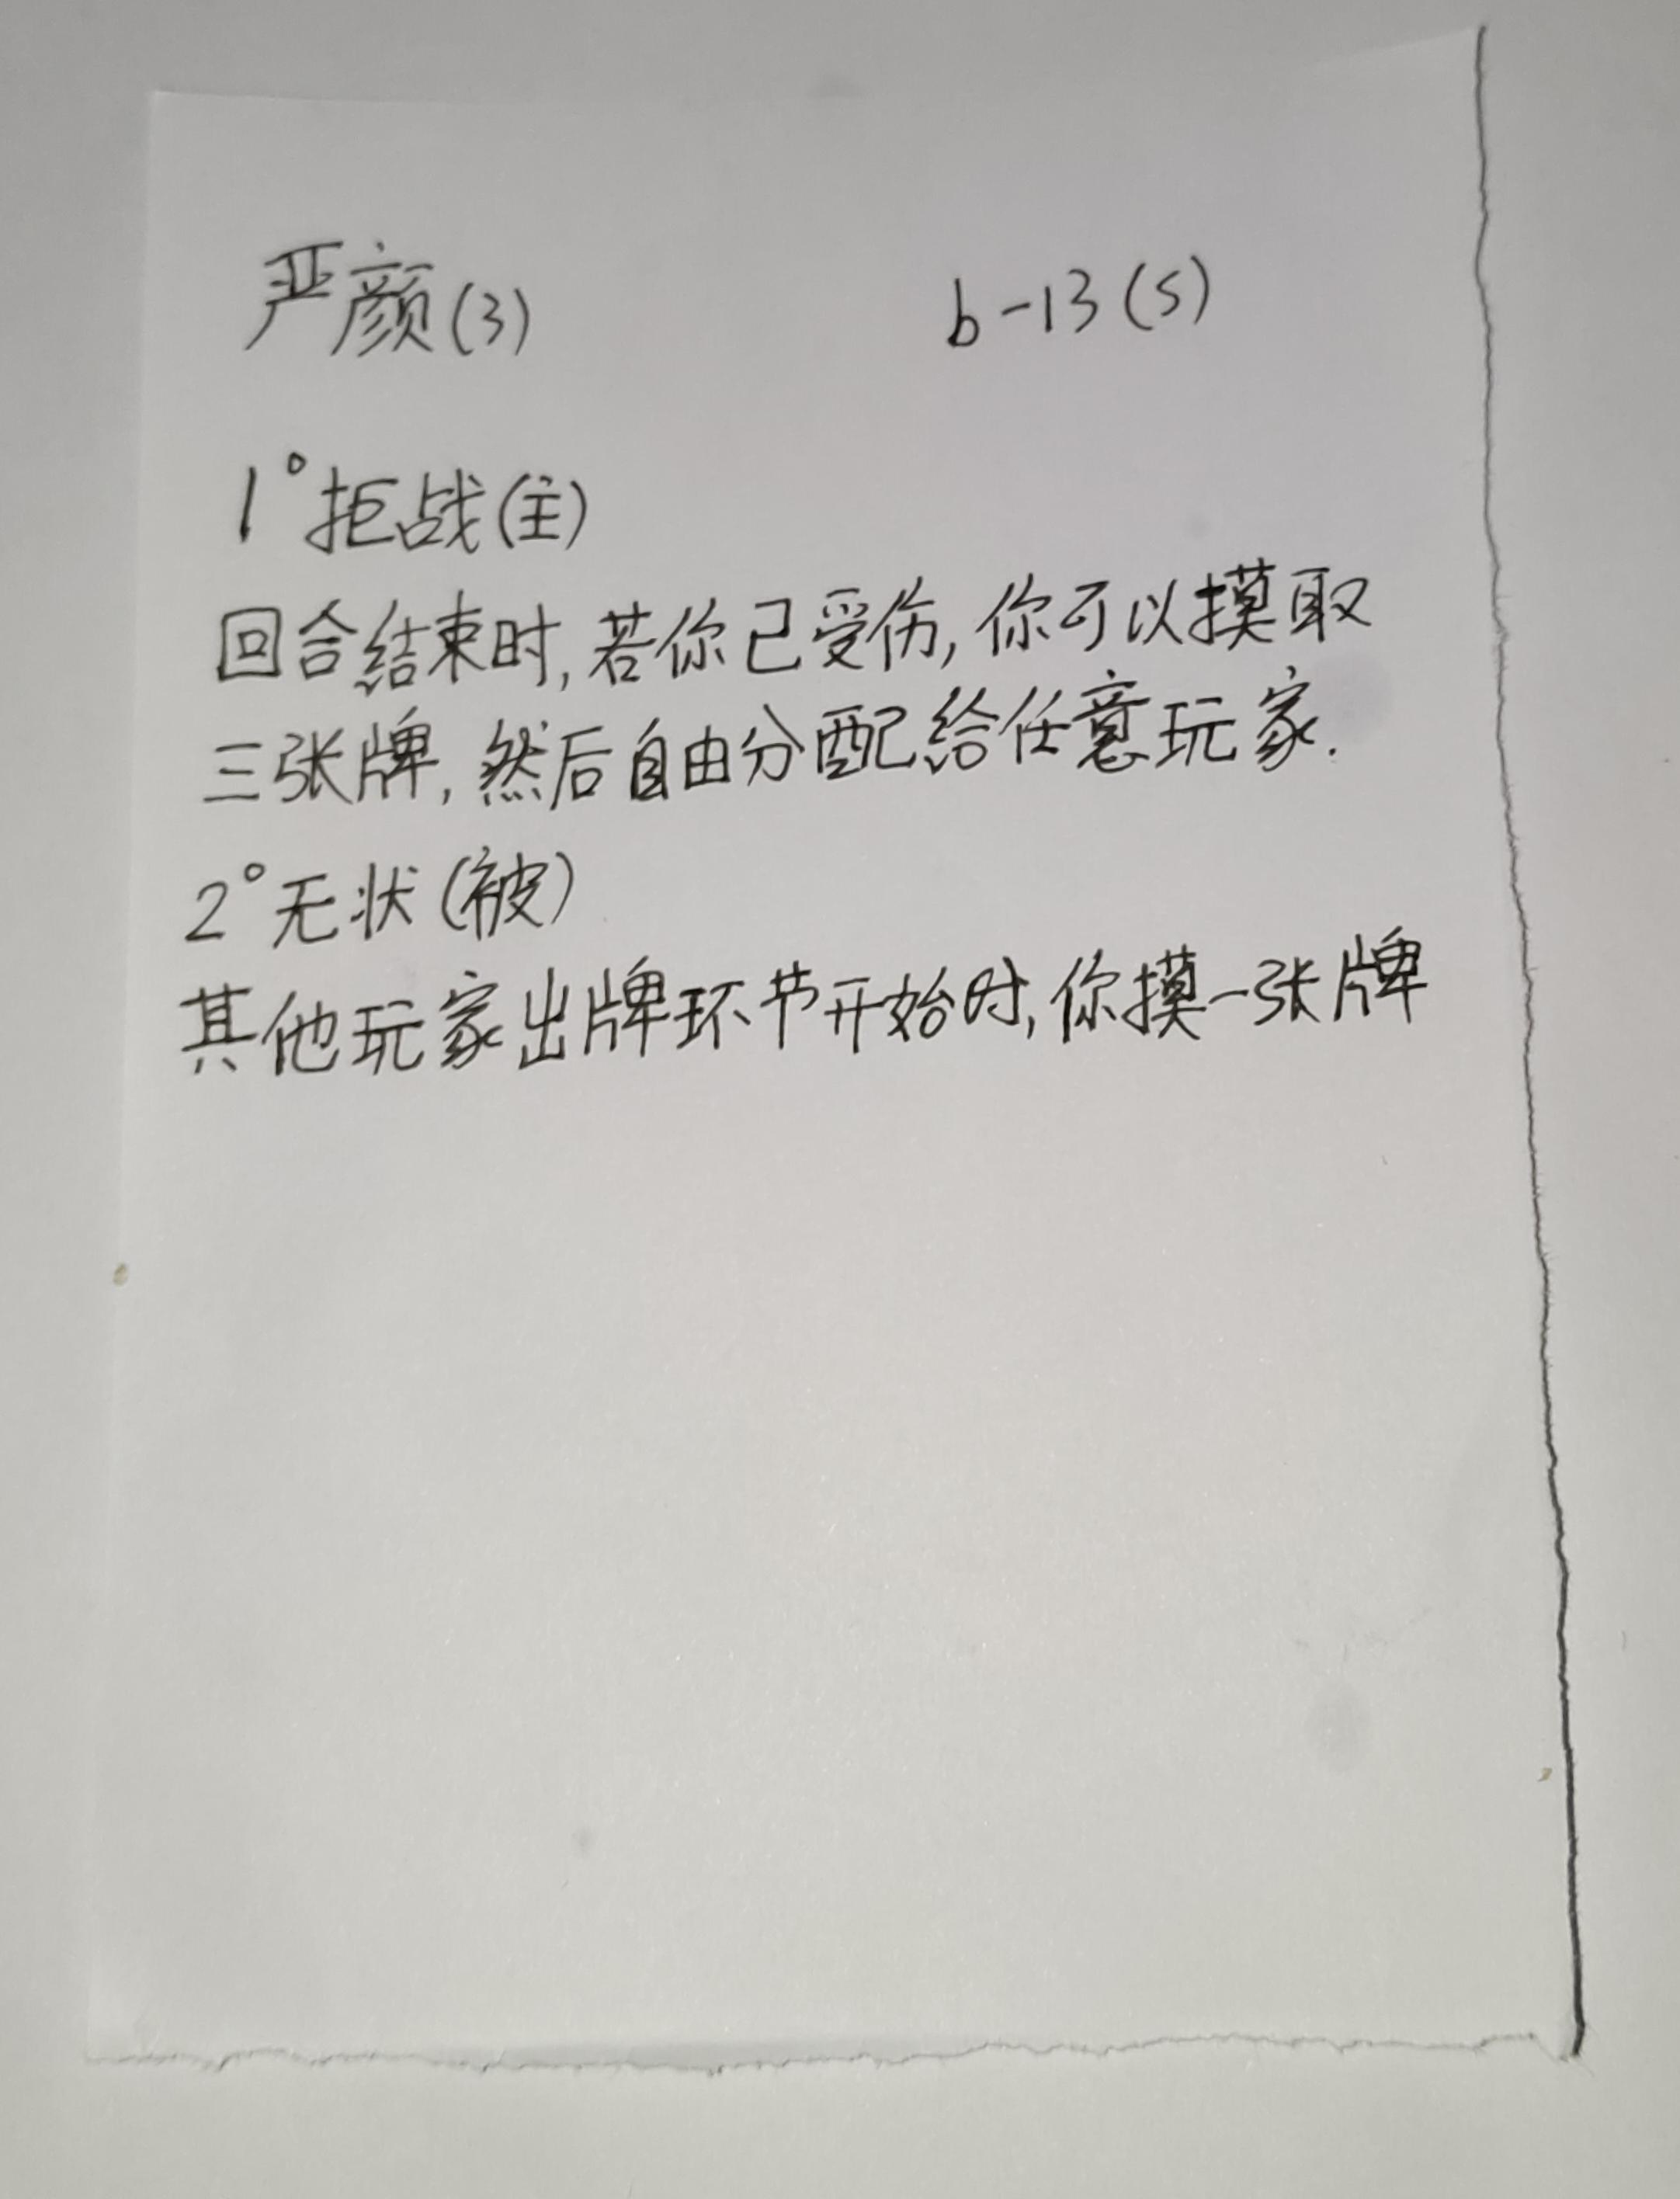 严颜(3) b-13(S)
1°拒战(主)
回合结束时,若你已受伤,你可以摸取
三张牌,然后自由分配给任意玩家.
2°无状(被)
其他玩家出牌环节开始时,你摸一张牌